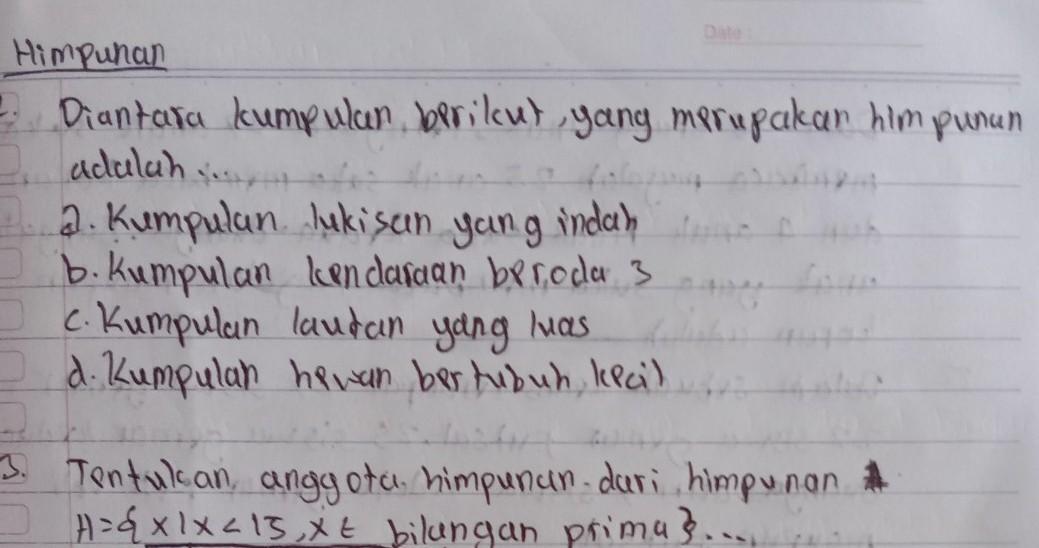 Date:
Himpunan
2. Diantara kumpulan berikut, yang merupakan himpunan
adalah ....
a. Kumpulan lukisan yang indah
b. Kumpulan kendaraan beroda 3
c. Kumpulan lautan yang luas
d. Kumpulan hewan bertubuh kecil
3. Tentukan anggota himpunan dari himpunan
H = { x | x < 15, x ∈ bilangan prima } ....